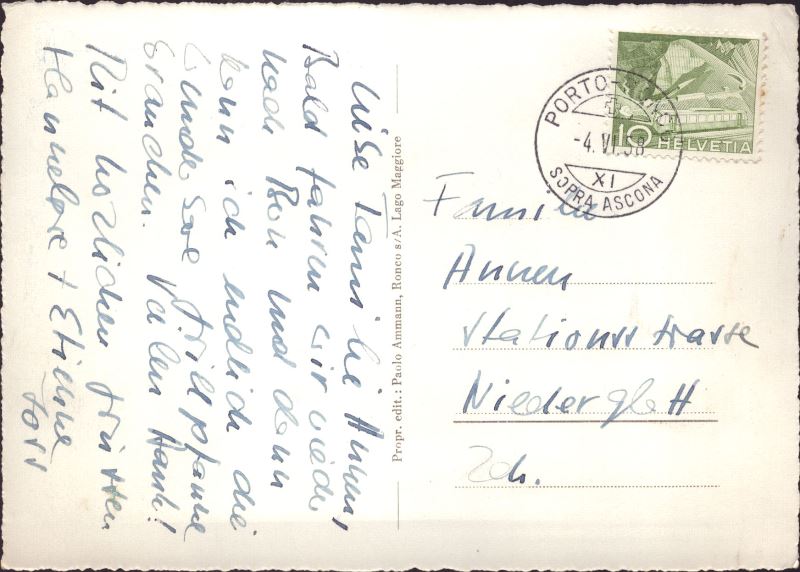 Liebe Familie Annen,
Bald fahren wir wieder
nach Bern und dann
kann ich endlich die
wunderbare Grillpfanne
brauchen. Vielen Dank!
Mit herzlichen Grüssen
Hannelore + Etienne
Propr. edit.: Paolo Ammann, Ronco s/A. Lago Maggiore
10 HELVETIA
PORTO-RONCO
-4.VI.58
XI
SOPRA ASCONA
Familie
Annen
Stationsstrasse
Niederglatt
Zch.